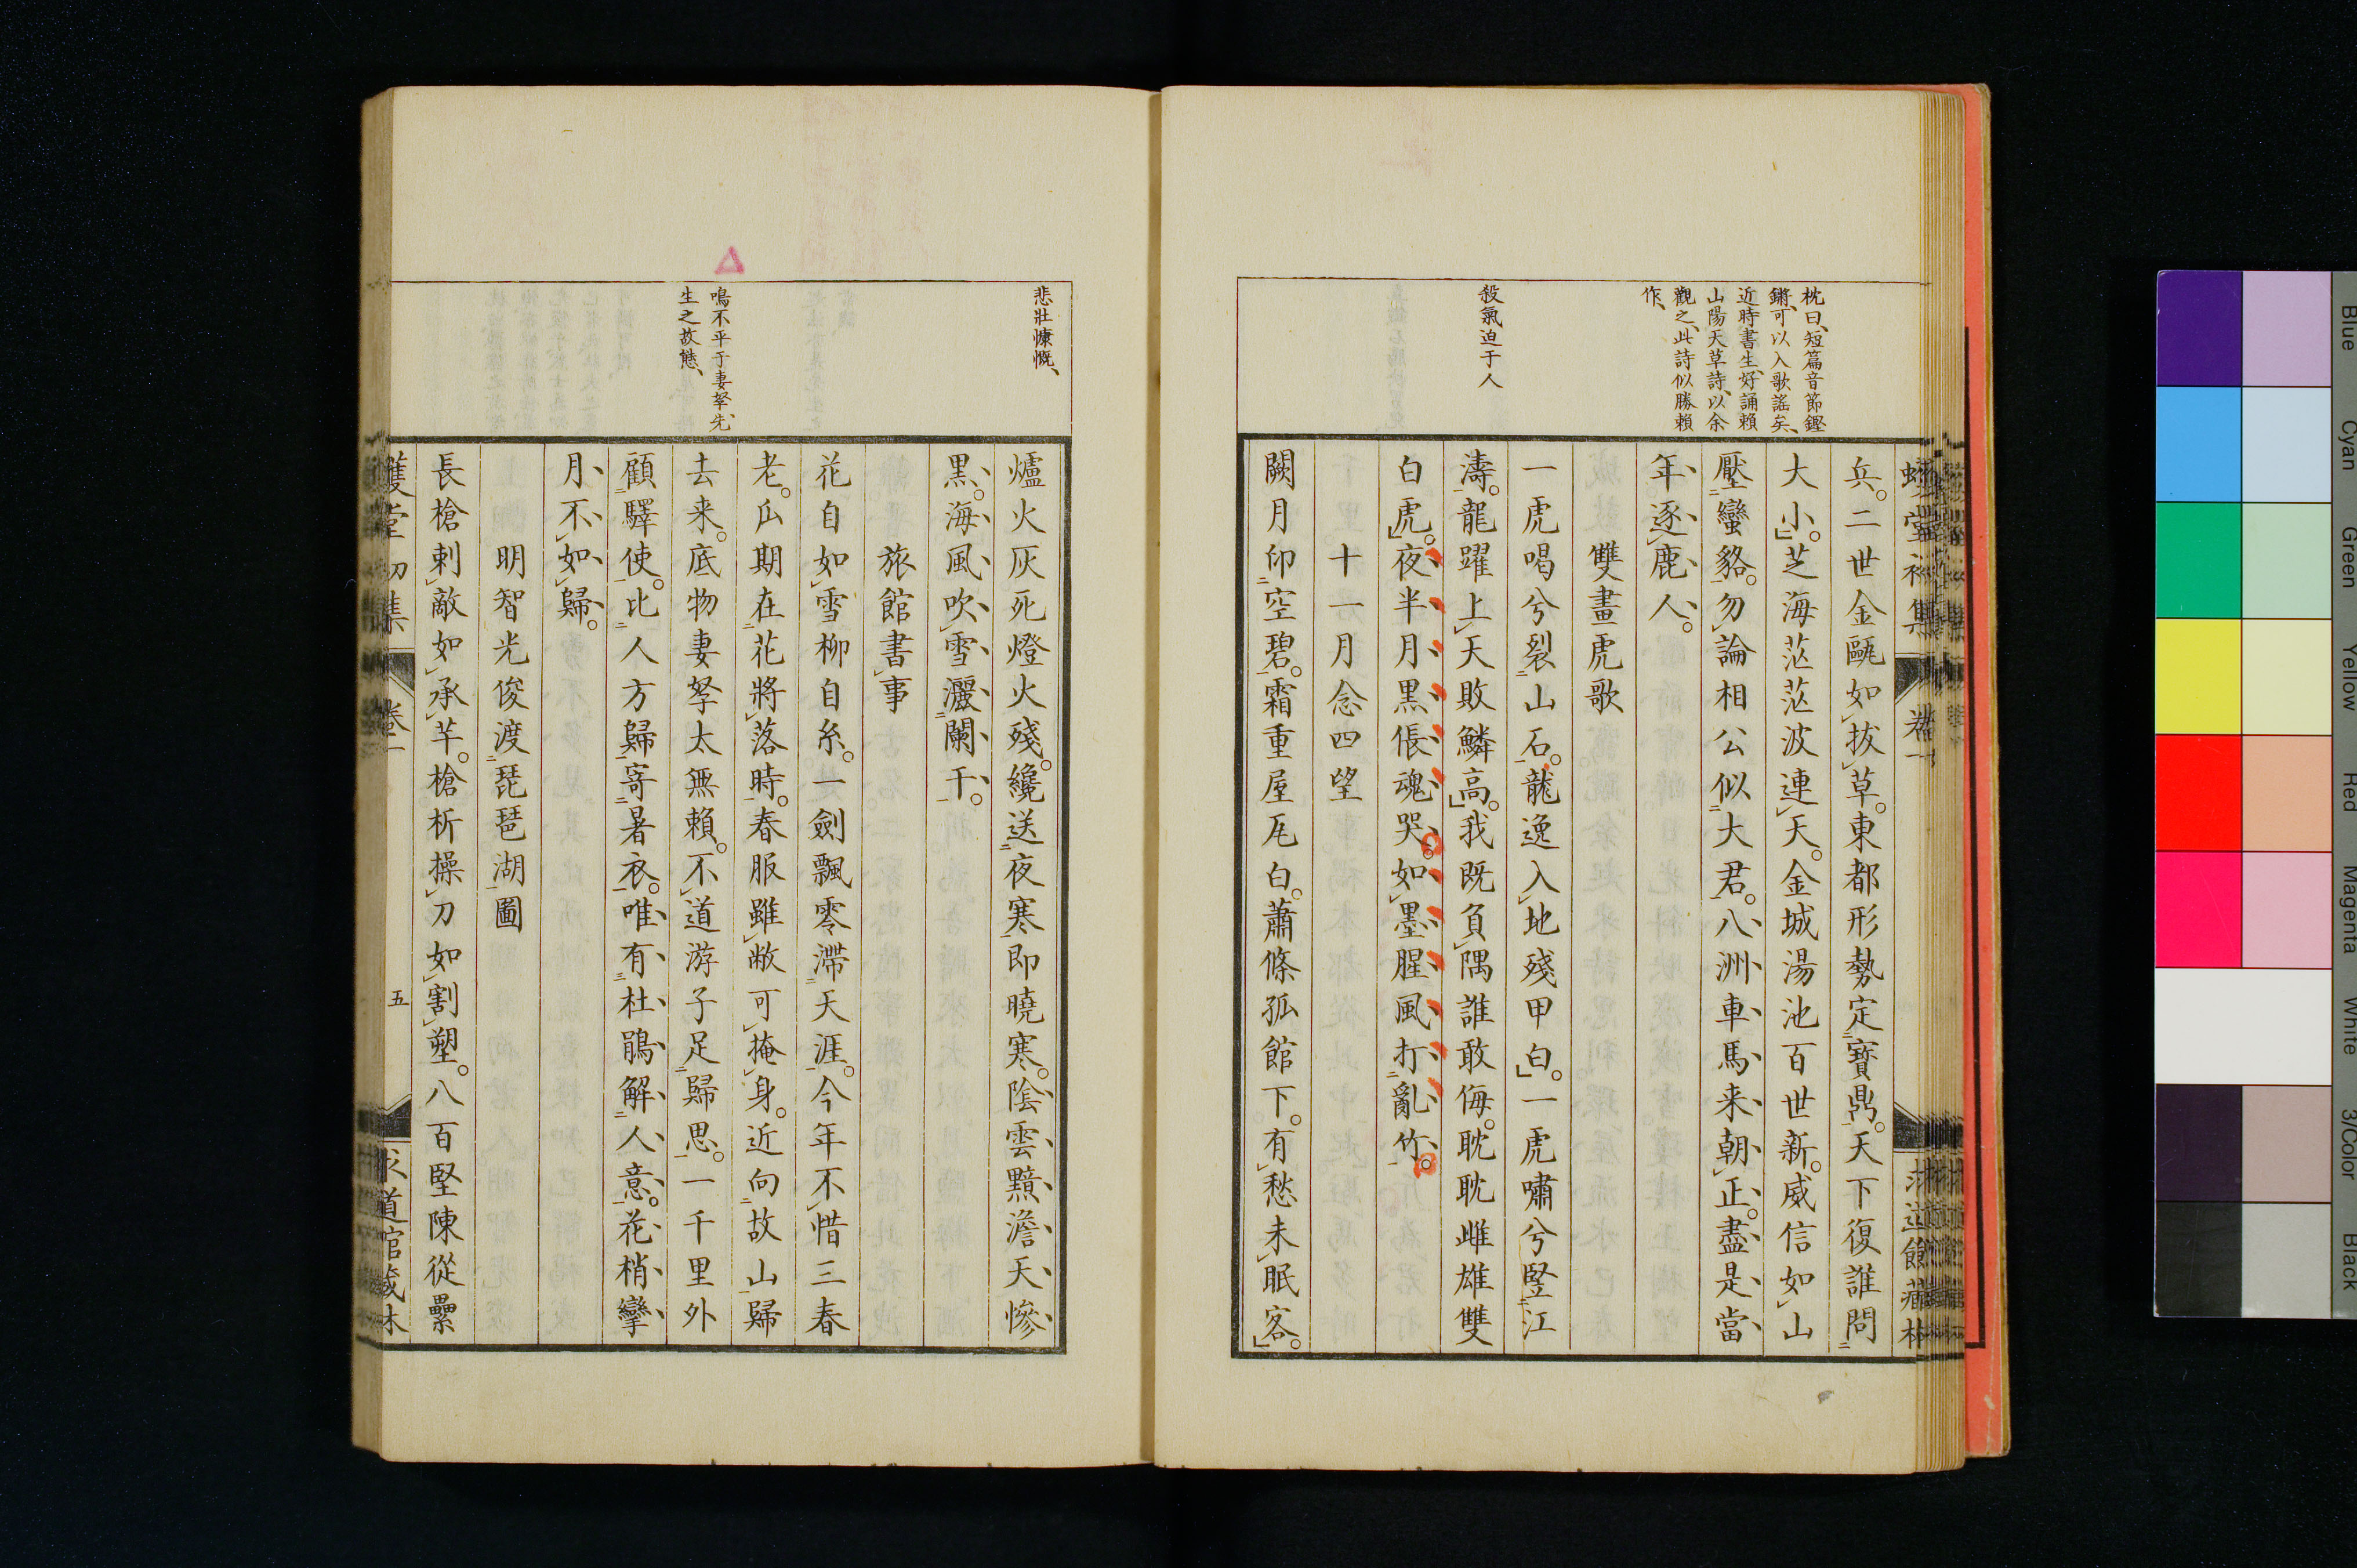 枕曰、短篇音節鏗
鏘、可以入歌謠矣、
近時書生、好誦賴
山陽天草詩、以余
觀之、此詩似勝賴
作、
殺氣迫于人
兵。二世金甌如拔草。東都形勢定寶鼎。天下復誰問
大小。芝海茫茫波連天。金城湯池百世新。威信如山
壓蠻貉。勿論相公似大君。八洲車馬来朝正。盡是當
年逐鹿人。
雙畫虎歌
一虎喝兮裂山石。龍逸入地殘甲白。一虎嘯兮竪江
濤。龍躍上天敗鱗高。我既負隅誰敢侮。耽耽雌雄雙
白虎。夜半月黑倀魂哭。如墨腥風打亂竹。
十一月念四望
闕月印空碧。霜重屋瓦白。蕭條孤館下。有愁未眠客。
悲壯慷慨、
鳴不平于妻孥、先
生之故態、
爐火灰死燈火殘。纔送夜寒即曉寒。陰雲黯澹天慘
黑。海風吹雪灑闌干。
旅館書事
花自如雪柳自糸。一劍飄零滯天涯。今年不惜三春
老。瓜期在花將落時。春服雖敝可掩身。近向故山歸
去来。底物妻孥太無賴。不道游子足歸思。一千里外
顧驛使。比人方歸寄暑衣。唯有杜鵑解人意。花梢攣
月不如歸。
明智光俊渡琵琶湖圖
長槍刺敵如承芊。槍折操刀如割塑。八百堅陳從纍
卷一
五
求道館藏木